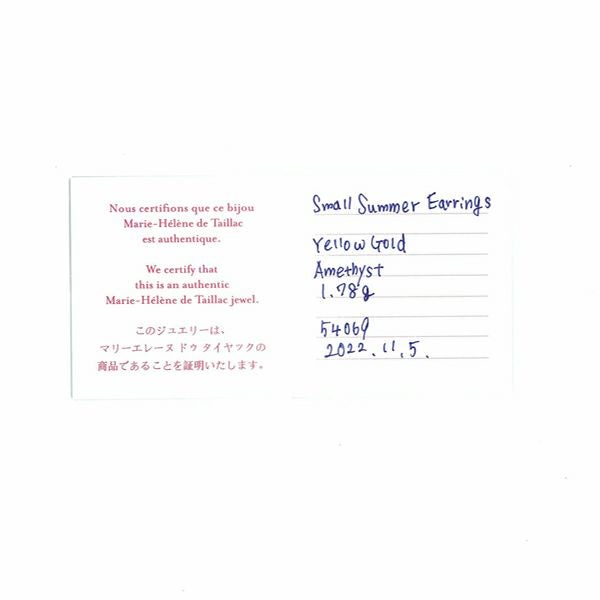 Nous certifions que ce bijou
Marie-Hélène de Taillac
est authentique.
We certify that
this is an authentic
Marie-Hélène de Taillac jewel.
このジュエリーは、
マリーエレーヌ ドゥ タイヤックの
商品であることを証明いたします。
Small Summer Earrings
Yellow Gold
Amethyst
1.78g
54069
2022.11.5.